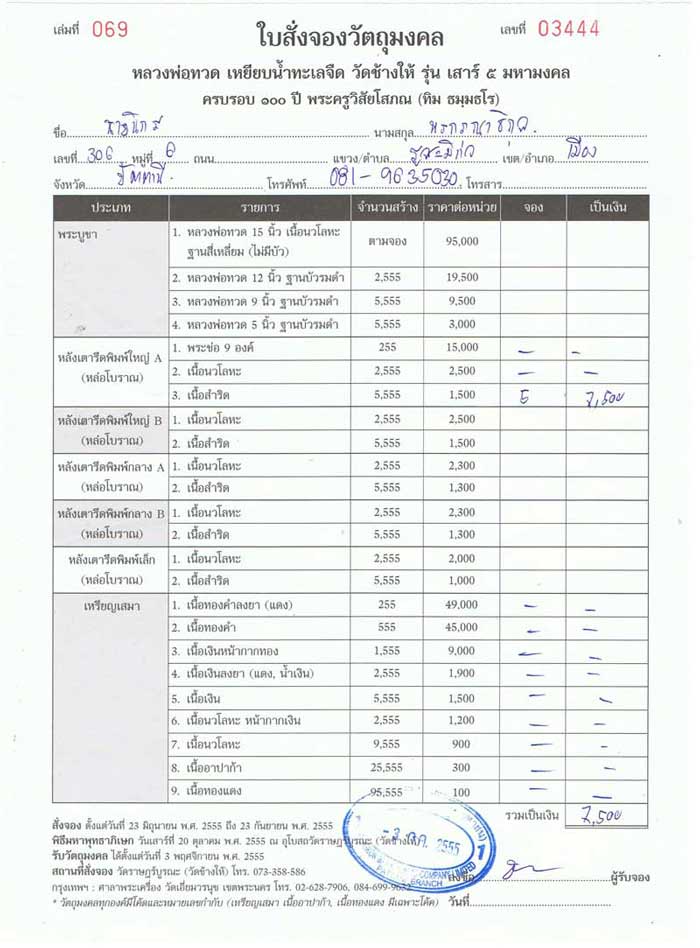 เล่มที่ 069
ใบสั่งจองวัตถุมงคล
เลขที่ 03444
หลวงพ่อทวด เหยียบน้ำทะเลจืด วัดช้างให้ รุ่น เสาร์ ๕ มหามงคล
ครบรอบ ๑๐๐ ปี พระครูวิสัยโสภณ (ทิม ธมฺมธโร)
ชื่อ นามสกุล
เลขที่ 306 หมู่ที่ 6 ถนน แขวง/ตำบล รูสะมิแล เขต/อำเภอ เมือง
จังหวัด ปัตตานี โทรศัพท์ 081-9635030 โทรสาร
ประเภท รายการ จำนวนสร้าง ราคาต่อหน่วย จอง เป็นเงิน
พระบูชา 1. หลวงพ่อทวด 15 นิ้ว เนื้อนวโลหะ
ฐานสี่เหลี่ยม (ไม่มีบัว) ตามจอง 95,000
2. หลวงพ่อทวด 12 นิ้ว ฐานบัวรมดำ 2,555 19,500
3. หลวงพ่อทวด 9 นิ้ว ฐานบัวรมดำ 5,555 9,500
4. หลวงพ่อทวด 5 นิ้ว ฐานบัวรมดำ 5,555 3,000
หลังเตารีดพิมพ์ใหญ่ A 1. พระช่อ 9 องค์ 255 15,000 - -
(หล่อโบราณ) 2. เนื้อนวโลหะ 2,555 2,500 - -
3. เนื้อสำริด 5,555 1,500 5 7,500
หลังเตารีดพิมพ์ใหญ่ B 1. เนื้อนวโลหะ 2,555 2,500
(หล่อโบราณ) 2. เนื้อสำริด 5,555 1,500
หลังเตารีดพิมพ์กลาง A 1. เนื้อนวโลหะ 2,555 2,300
(หล่อโบราณ) 2. เนื้อสำริด 5,555 1,300
หลังเตารีดพิมพ์กลาง B 1. เนื้อนวโลหะ 2,555 2,300
(หล่อโบราณ) 2. เนื้อสำริด 5,555 1,300
หลังเตารีดพิมพ์เล็ก 1. เนื้อนวโลหะ 2,555 2,000
(หล่อโบราณ) 2. เนื้อสำริด 5,555 1,000
เหรียญเสมา 1. เนื้อทองคำลงยา (แดง) 255 49,000 - -
2. เนื้อทองคำ 555 45,000 - -
3. เนื้อเงินหน้ากากทอง 1,555 9,000 - -
4. เนื้อเงินลงยา (แดง, น้ำเงิน) 2,555 1,900 - -
5. เนื้อเงิน 5,555 1,500 - -
6. เนื้อนวโลหะ หน้ากากเงิน 2,555 1,200 - -
7. เนื้อนวโลหะ 9,555 900 - -
8. เนื้ออาปาก้า 25,555 300 - -
9. เนื้อทองแดง 95,555 100 - -
รวมเป็นเงิน 7,500
สั่งจอง ตั้งแต่วันที่ 23 มิถุนายน พ.ศ. 2555 ถึง 23 กันยายน พ.ศ. 2555
พิธีมหาพุทธาภิเษก วันเสาร์ที่ 20 ตุลาคม พ.ศ. 2555 ณ อุโบสถวัดราษฎร์บูรณะ (วัดช้างให้)
รับวัตถุมงคล ได้ตั้งแต่วันที่ 3 พฤศจิกายน พ.ศ. 2555
สถานที่สั่งจอง วัดราษฎร์บูรณะ (วัดช้างให้) โทร. 073-358-586
ลงชื่อ ผู้รับจอง
กรุงเทพฯ : ศาลาพระเครื่อง วัดเอี่ยมวรนุช เขตพระนคร โทร. 02-628-7906, 084-699-9632
* วัตถุมงคลทุกองค์มีโค้ดและหมายเลขกำกับ (เหรียญเสมา เนื้ออาปาก้า, เนื้อทองแดง มีเฉพาะโค้ด) วันที่
2555
COMPANY LIMITED
BRANCH
1